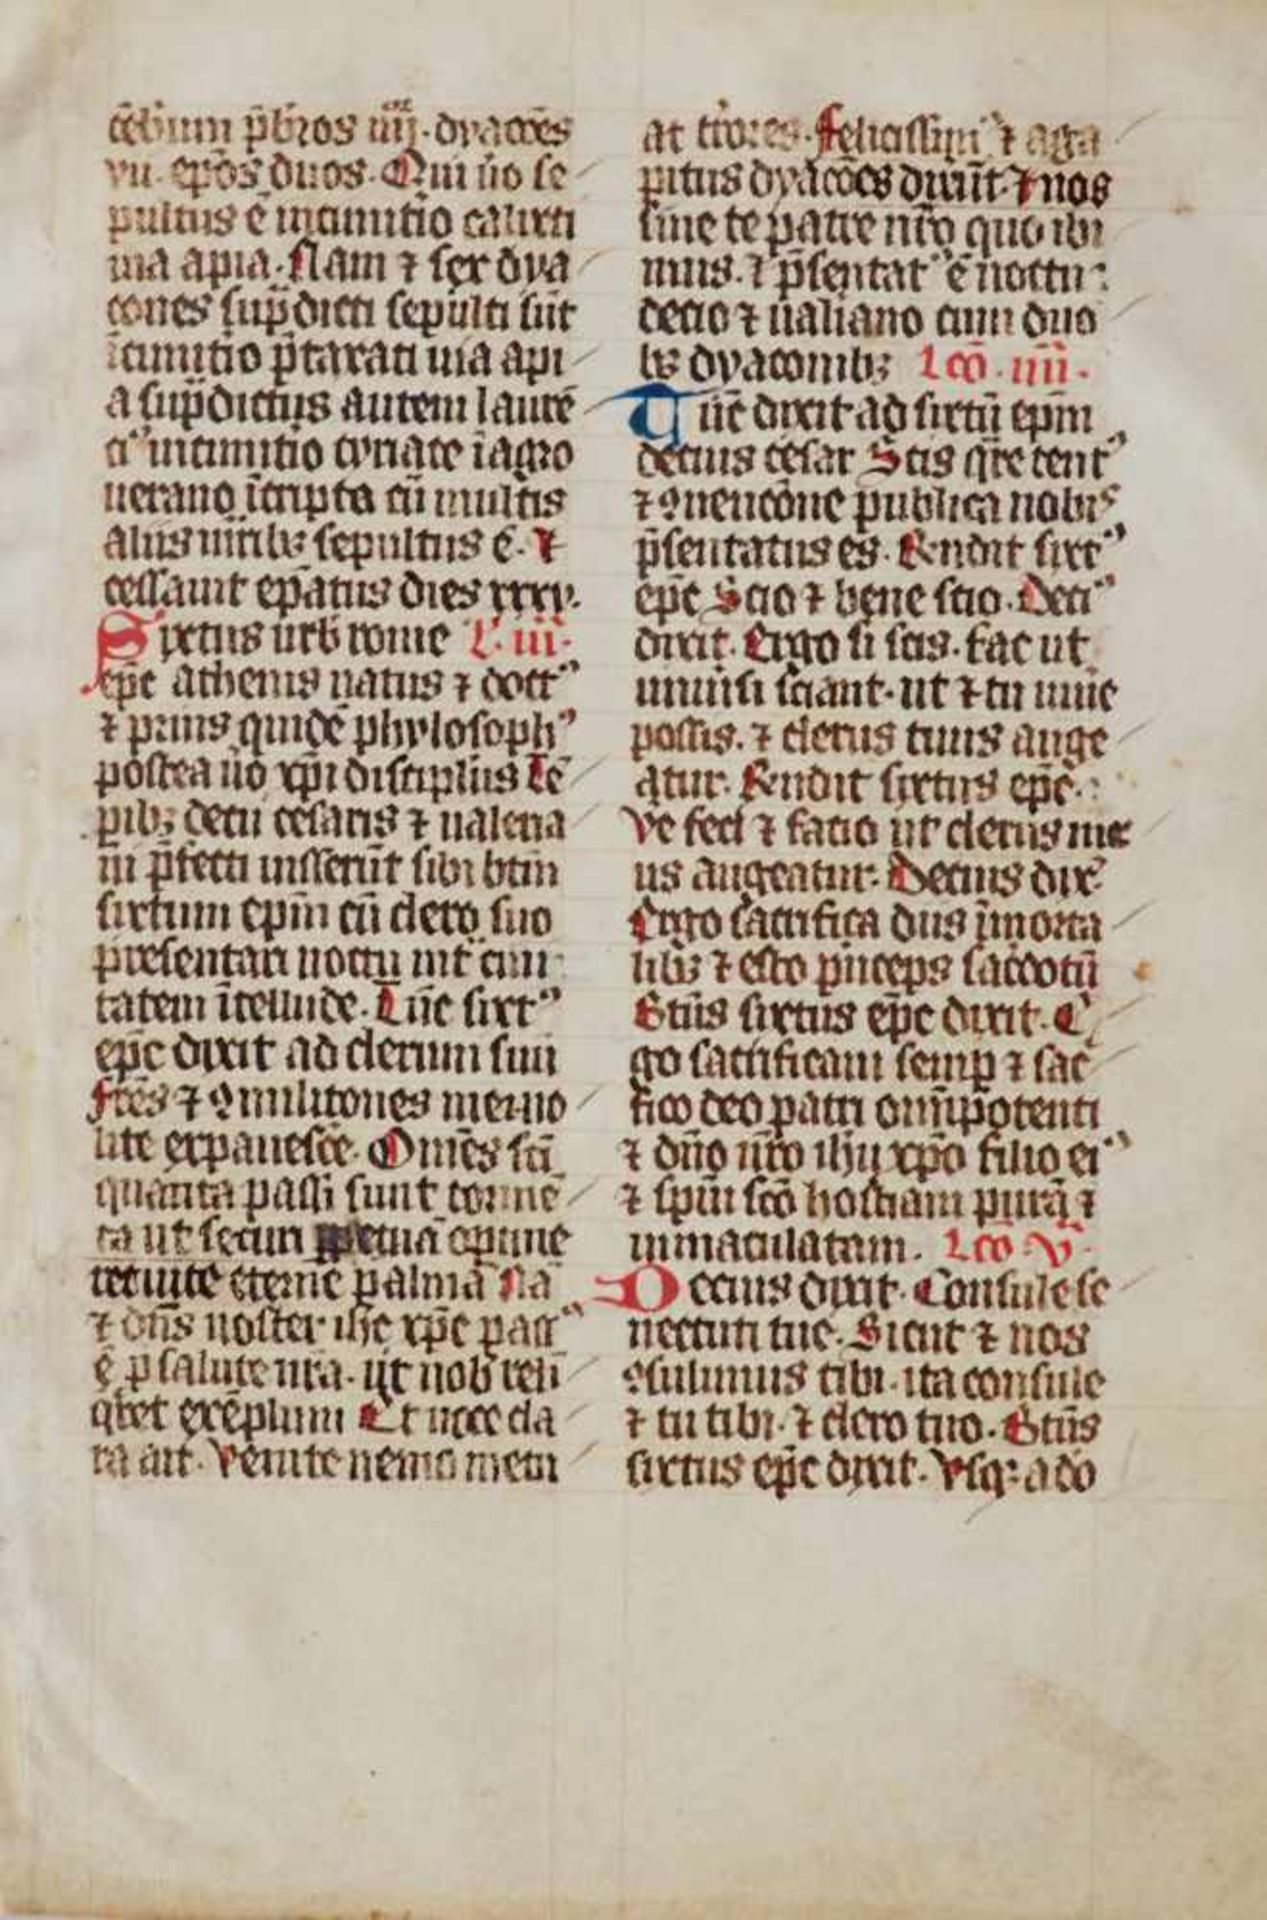 cēbrium p̄bros iiij. dyacōes
vii. ep̄os duos. Qui ūo se
pultus ē ī cimit̄io calixti
uia apia. Nam ⁊ sex dya
cones sup̄dicti sepulti sūt
ī cimit̄io p̄taxati uia api
a sup̄dictus autem laurē
ciꝰ in cimit̄io ciriace ī agro
uerano ī cripta cū multis
aliis m̄rib; sepultus ē. ⁊
cessauit ep̄atus dies xxxv.
Sixtus urb̄ rome L. iii.
ep̄c athenis natus ⁊ doctꝰ
⁊ prius quidē phylosophꝰ
postea ūo xp̄i discipl̄us Tē
pib; decii cesaris ⁊ ualeria
ni p̄fecti iusserūt sibi btm̄
sixtum ep̄m cū clero suo
presentari noctu int̄ ciui
tatem ī tellude. Tūc sixtꝰ
ep̄c dixit ad clerum suū
fr̄es ⁊ ꝯmilitones mei no
lite expauescē. Om̄es sc̄i
quanta passi sunt tormē
ta ut securi petuā optine
rēt uite eterne palmā Nā
⁊ dn̄s noster ih̄c xp̄c pasſꝰ
ē p salute nr̄a. ut nob̄ reli
q̄ret exēplum Et uoce cla
ra ait. Venite nemo metu
at t̄rores. felicissimꝰ ⁊ aga
pitus dyacōes dixūt. ⁊ nos
sine te patre nr̄o quo ibi
mus. ⁊ p̄sentatꝰ ē noctu
decio ⁊ ualiano cum duo
b; dyaconib; Lcō. iiii.
Tūc dixit ad sixtū ep̄m
decius cesar Scis q̄re tentꝰ
⁊ ꝯuencōne publica nobis
p̄sentatus es. Rn̄dit sixtꝰ
ep̄c Scio ⁊ bene scio. Deciꝰ
dixit. Ergo si scis. fac ut
uniūsi sciant. ut ⁊ tu uiue
possis. ⁊ clerus tuus auge
atur. Rn̄dit sixtus ep̄c.
Ve feci ⁊ facio ut clerus me
us augeatur. Decius dix̄
Ergo sacrifica diis īmorta
lib; ⁊ esto p̄nceps sac̄dotū
Btūs sixtus ep̄c dixit. E
go sacrificaui semp ⁊ sac̄
fico deo patri om̄ipotenti
⁊ dn̄o nr̄o ih̄u xp̄o filio eiꝰ
⁊ spū sc̄o hostiam purā ⁊
inmaculatam. Lcō V.
Decius dixit. Consule se
nectuti tue. Sicut ⁊ nos
ꝯsulimus tibi. ita consule
⁊ tu tibi. ⁊ clero tuo. Btūs
sixtus ep̄c dixit. Vsq; ado